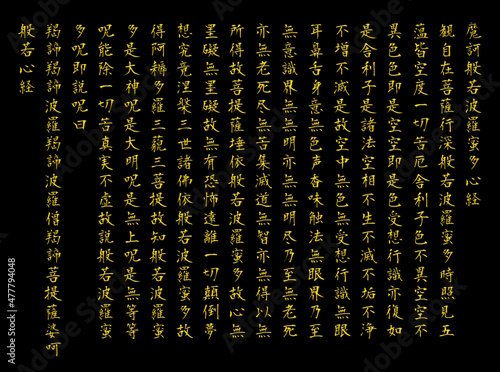 魔訶般若波羅蜜多心経
観自在菩薩行深般若波羅蜜多時照見五
蘊皆空度一切苦厄舎利子色不異空空不
異色色即是空空即是色受想行識亦復如
是舎利子是諸法空相不生不滅不垢不浄
不増不減是故空中無色無受想行識無眼
耳鼻舌身意無色声香味触法無眼界乃至
無意識界無無明亦無無明尽乃至無老死
亦無老死尽無苦集滅道無智亦無得以無
所得故菩提薩埵依般若波羅蜜多故心無
罣礙無罣礙故無有恐怖遠離一切顛倒夢
想究竟涅槃三世諸佛依般若波羅蜜多故
得阿耨多羅三藐三菩提故知般若波羅蜜
多是大神呪是大明呪是無上呪是無等等
呪能除一切苦真実不虚故説般若波羅蜜
多呪即説呪曰
羯諦羯諦波羅羯諦波羅僧羯諦菩提薩婆訶
般若心経
Adobe Stock | #477794048
photo